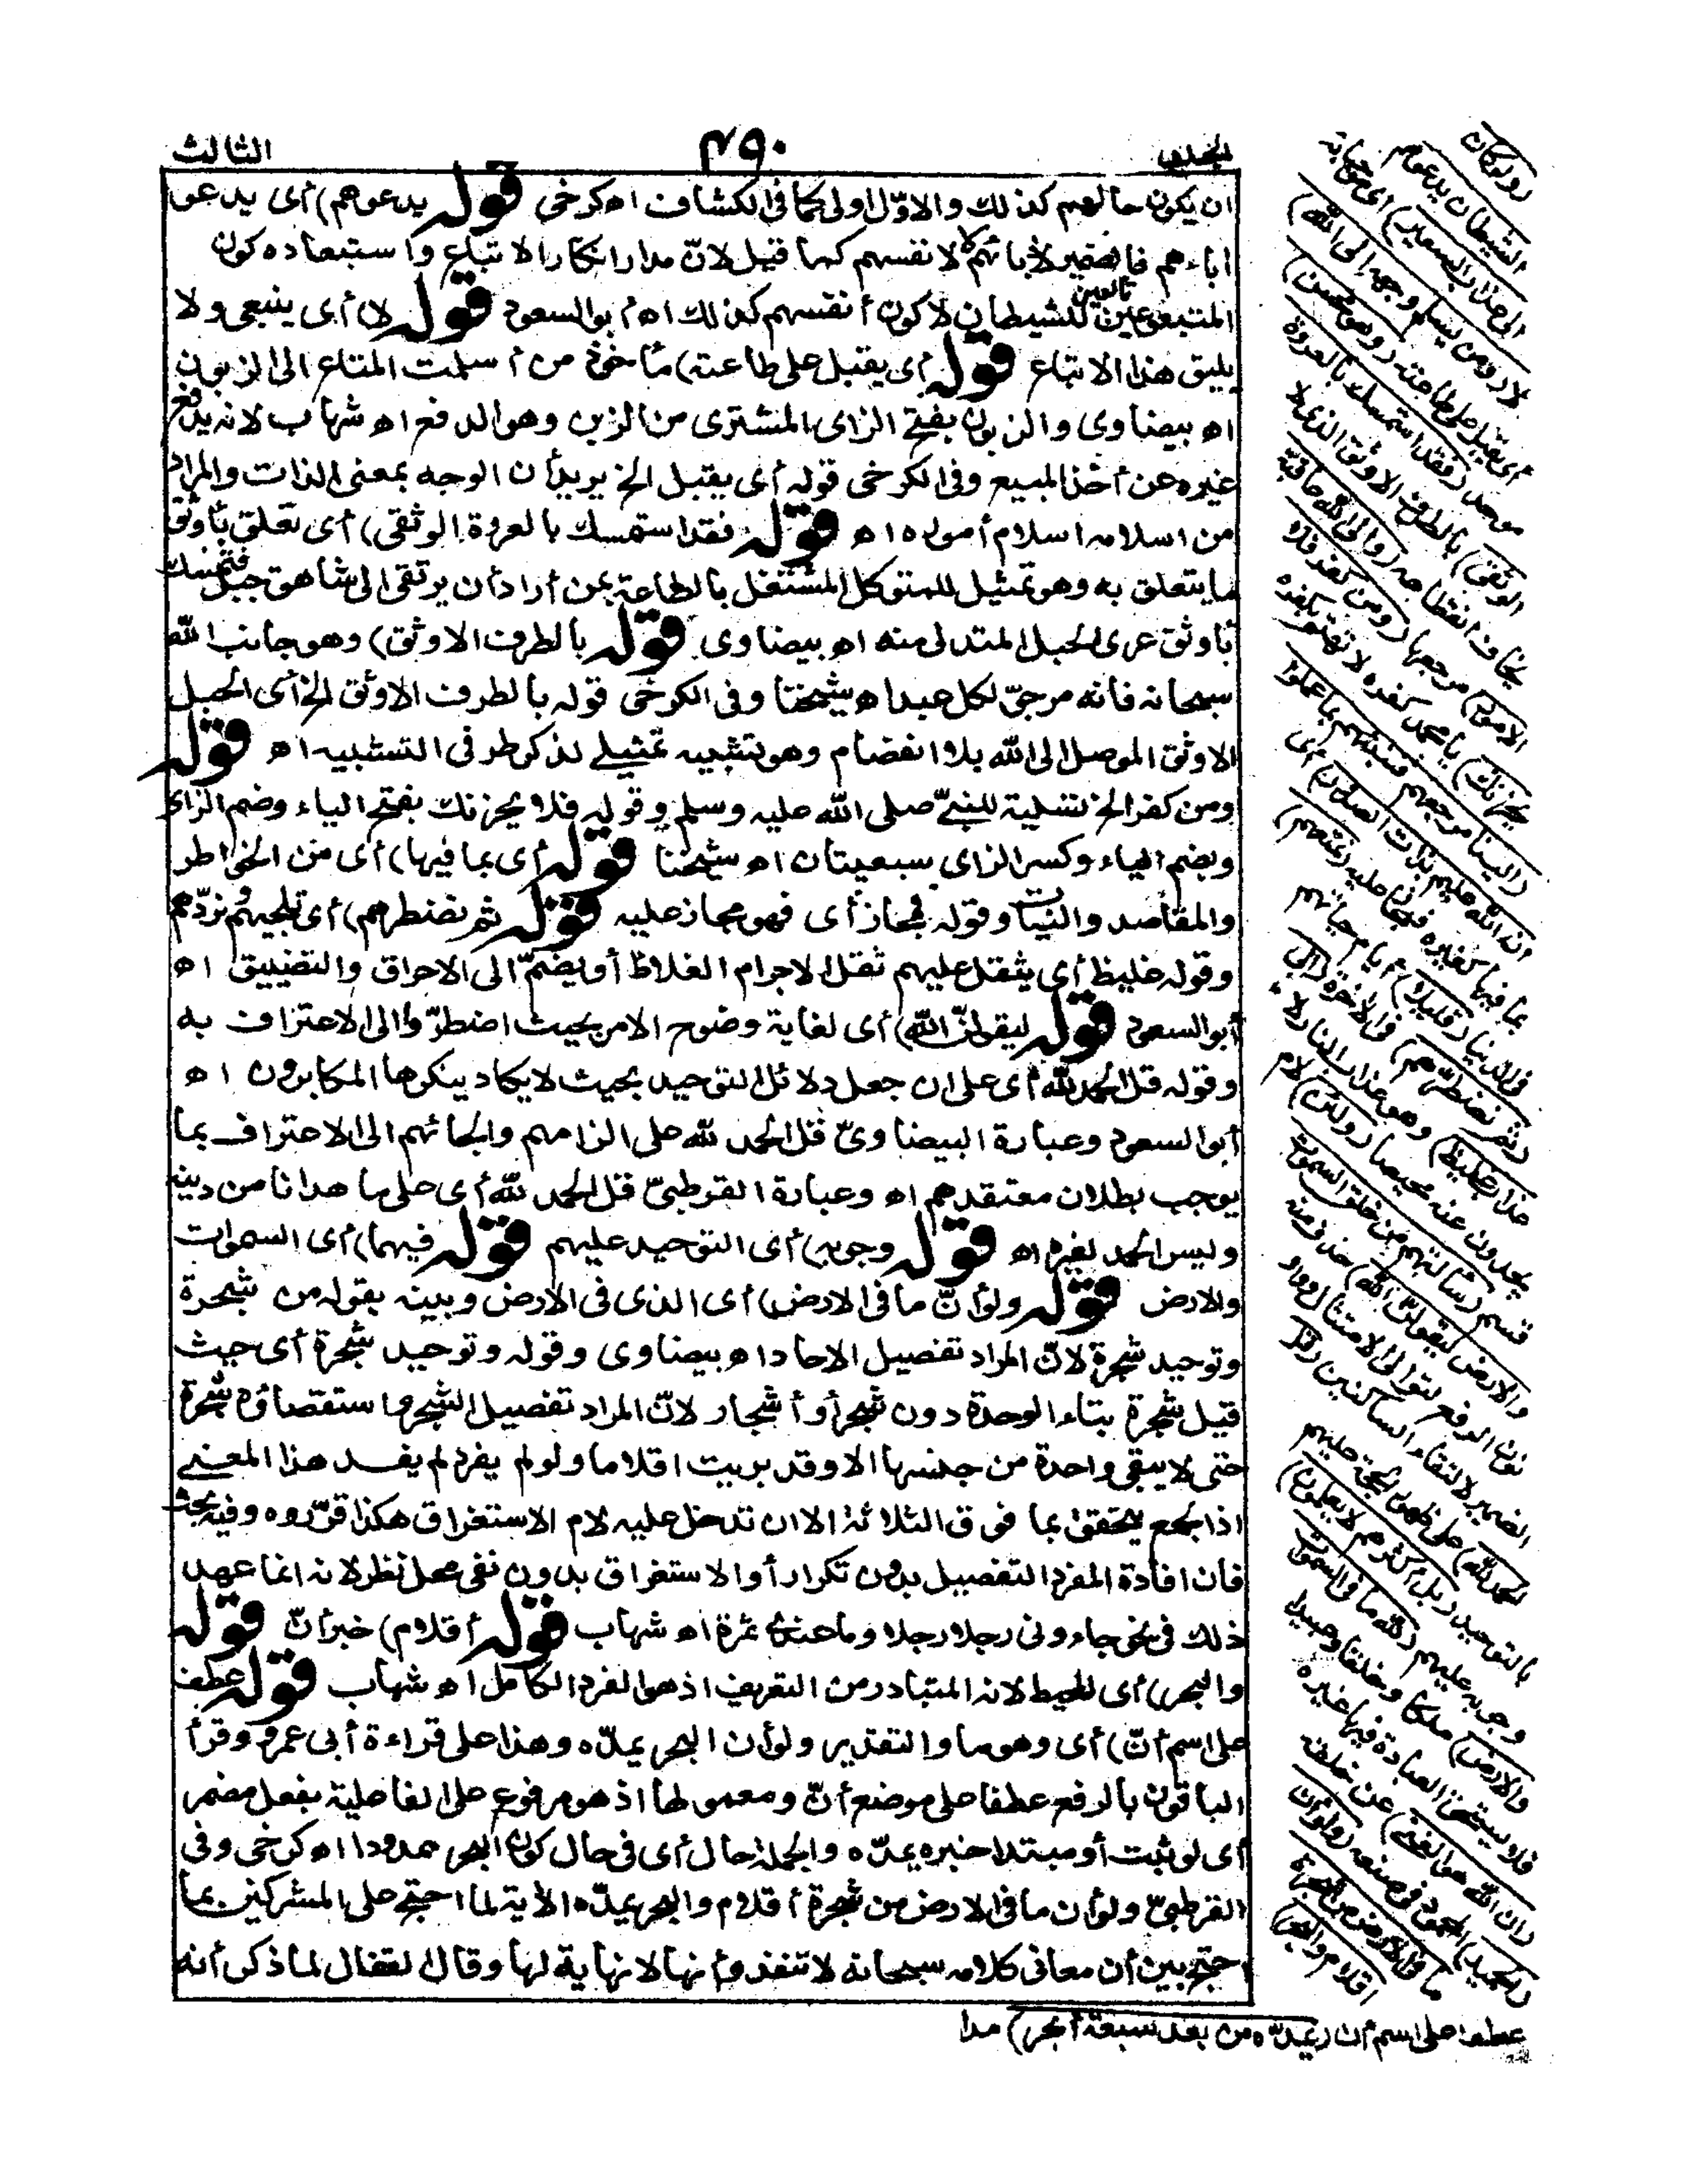 الجلد
٤٩٠
الثالث
ان يكون حالهم كذلك والاوّل اولى كما فى الكشاف اه كرخى قوله يدعوهم) أى يدعو
اباءهم فالضمير لأبائهم لا نفسهم كما قيل لانّ مدار انكار الاتباع واستبعاده كون
المتبوعين تابعين للشيطان لا كون أنفسهم كذلك اه أبو السعود قوله لا) أى ينبغى ولا
يليق هذا الاتباع قوله أى يقبل على طاعته) مأخوذ من أسلمت المتاع الى الزبون
اه بيضاوى والزبون بفتح الزاى المشترى من الزبن وهو الدفع اه شهاب لانه يدفع
غيره عن أخذ المبيع وفى الكرخى قوله أى يقبل الخ يريد أن الوجه بمعنى الذات والمراد
من اسلامه اسلام أموره اه قوله فقد استمسك بالعروة الوثقى) أى تعلق بأوثق
ما يتعلق به وهو تمثيل للمتوكل المشتغل بالطاعة بمن أراد أن يرتقى الى شاهق جبل فتمسك
بأوثق عرى الحبل المتدلى منه اه بيضاوى قوله بالطرف الاوثق) وهو جانب الله
سبحانه فانه مرجىّ لكل عبد اه شيخنا وفى الكرخى قوله بالطرف الاوثق الخ أى الحبل
الاوثق الموصل الى الله بلا انفصام وهو تشبيه تمثيلے لذكر طرفى التشبيه اه قوله
ومن كفر الخ تسلية للنبىّ صلى الله عليه وسلم وقوله فلا يحزنك بفتح الياء وضم الزاى
وبضم الياء وكسر الزاى سبعيتان اه شيخنا قوله أى بما فيها) أى من الخواطر
والمقاصد والنيات وقوله فمجاز أى فهو مجاز عليه قوله ثم نضطرهم) أى نلجيهم ونردّهم
وقوله غليظ أى يثقل عليهم ثقل الاجرام الغلاظ أو يضمّ الى الاحراق والتضييق اه
أبو السعود قوله ليقولنّ الله) أى لغاية وضوح الامر بحيث اضطرّوا الى الاعتراف به
وقوله قل الحمد لله أى على ان جعل دلائل التوحيد بحيث لا يكاد ينكرها المكابرون اه
أبو السعود وعبارة البيضاوىّ قل الحمد لله على الزامهم والجائهم الى الاعتراف بما
يوجب بطلان معتقدهم اه وعبارة القرطبىّ قل الحمد لله أى على ما هدانا من دينه
وليس الحمد لغيره اه قوله وجوبه) أى التوحيد عليهم قوله فيهما) أى السموات
والارض قوله ولو أنّ ما فى الارض) أى الذى فى الارض وبينه بقوله من شجرة
وتوحيد شجرة لانّ المراد تفصيل الاحاد اه بيضاوى وقوله وتوحيد شجرة أى حيث
قيل شجرة بتاء الوحدة دون شجر أو أشجار لانّ المراد تفصيل الشجر واستقصاؤه شجرة
حتى لا يبقى واحدة من جنسها الا وقد بريت اقلاما ولو لم يفرد لم يفد هذا المعنے
اذ الجمع يتحقق بما فوق الثلاثة الا ان تدخل عليه لام الاستغراق هكذا قرّروه وفيه بحث
فان افادة المفرد التفصيل بدون تكرار أو الاستغراق بدون نفى محل نظر لانه انما عهد
ذلك فى نحو جاءونى رجلا رجلا وما عندى تمرة اه شهاب قوله أقلام) خبر أنّ قوله
والبحر) أى المحيط لانه المتبادر من التعريف اذ هو الفرد الكامل اه شهاب قوله عطف
على اسم أنّ) أى وهو ما والتقدير ولو أن البحر يمدّه وهذا على قراءة أبى عمرو وقرأ
الباقون بالرفع عطفا على موضع أنّ ومعمولها اذ هو مرفوع على الفاعلية بفعل مضمر
أى لو ثبت أو مبتدأ خبره يمدّه والجملة حال أى فى حال كون البحر ممدودا اه كرخى وفى
القرطبىّ ولو أن ما فى الارض من شجرة أقلام والبحر يمدّه الأية لما احتج على المشركين بما
احتج بين أن معانى كلامه سبحانه لا تنفد وأنها لا نهاية لها وقال القفال لما ذكر أنه
(أولو كان
الشيطان يدعوهم
الى عذاب السعير) أى موجباته
لا (ومن يسلم وجهه الى الله)
أى يقبل على طاعته (وهو محسن)
موحد (فقد استمسك بالعروة
الوثقى) بالطرف الاوثق الذى لا
يخاف انقطاعه (والى الله عاقبة
الامور) مرجعها (ومن كفر فلا
يحزنك) يا محمد كفره لا تهتم بكفره
(الينا مرجعهم فننبئهم بما عملوا
ان الله عليم بذات الصدور) أى
بما فيها كغيره فمجاز عليه (نمتعهم)
فى الدنيا (قليلا) أيام حياتهم
(ثم نضطرهم) فى الاخرة (الى
عذاب غليظ) وهو عذاب النار لا
يجدون عنه محيصا (ولئن) لام
قسم (سألتهم من خلق السموات
والارض ليقولنّ الله) حذف منه
نون الرفع لتوالى الامثال وواو
الضمير لالتقاء الساكنين (قل
الحمد لله) على ظهور الحجة عليهم
بالتوحيد (بل أكثرهم لا يعلمون)
وجوبه عليهم (لله ما فى السموات
والارض) ملكا وخلقا وعبيدا
فلا يستحق العبادة فيهما غيره
(ان الله هو الغنى) عن خلقه
(الحميد) المحمود فى صنعه (ولو أن
ما فى الارض من شجرة
أقلام والبحر)
عطف على اسم أن (يمدّه من بعده سبعة أبحر) مدا